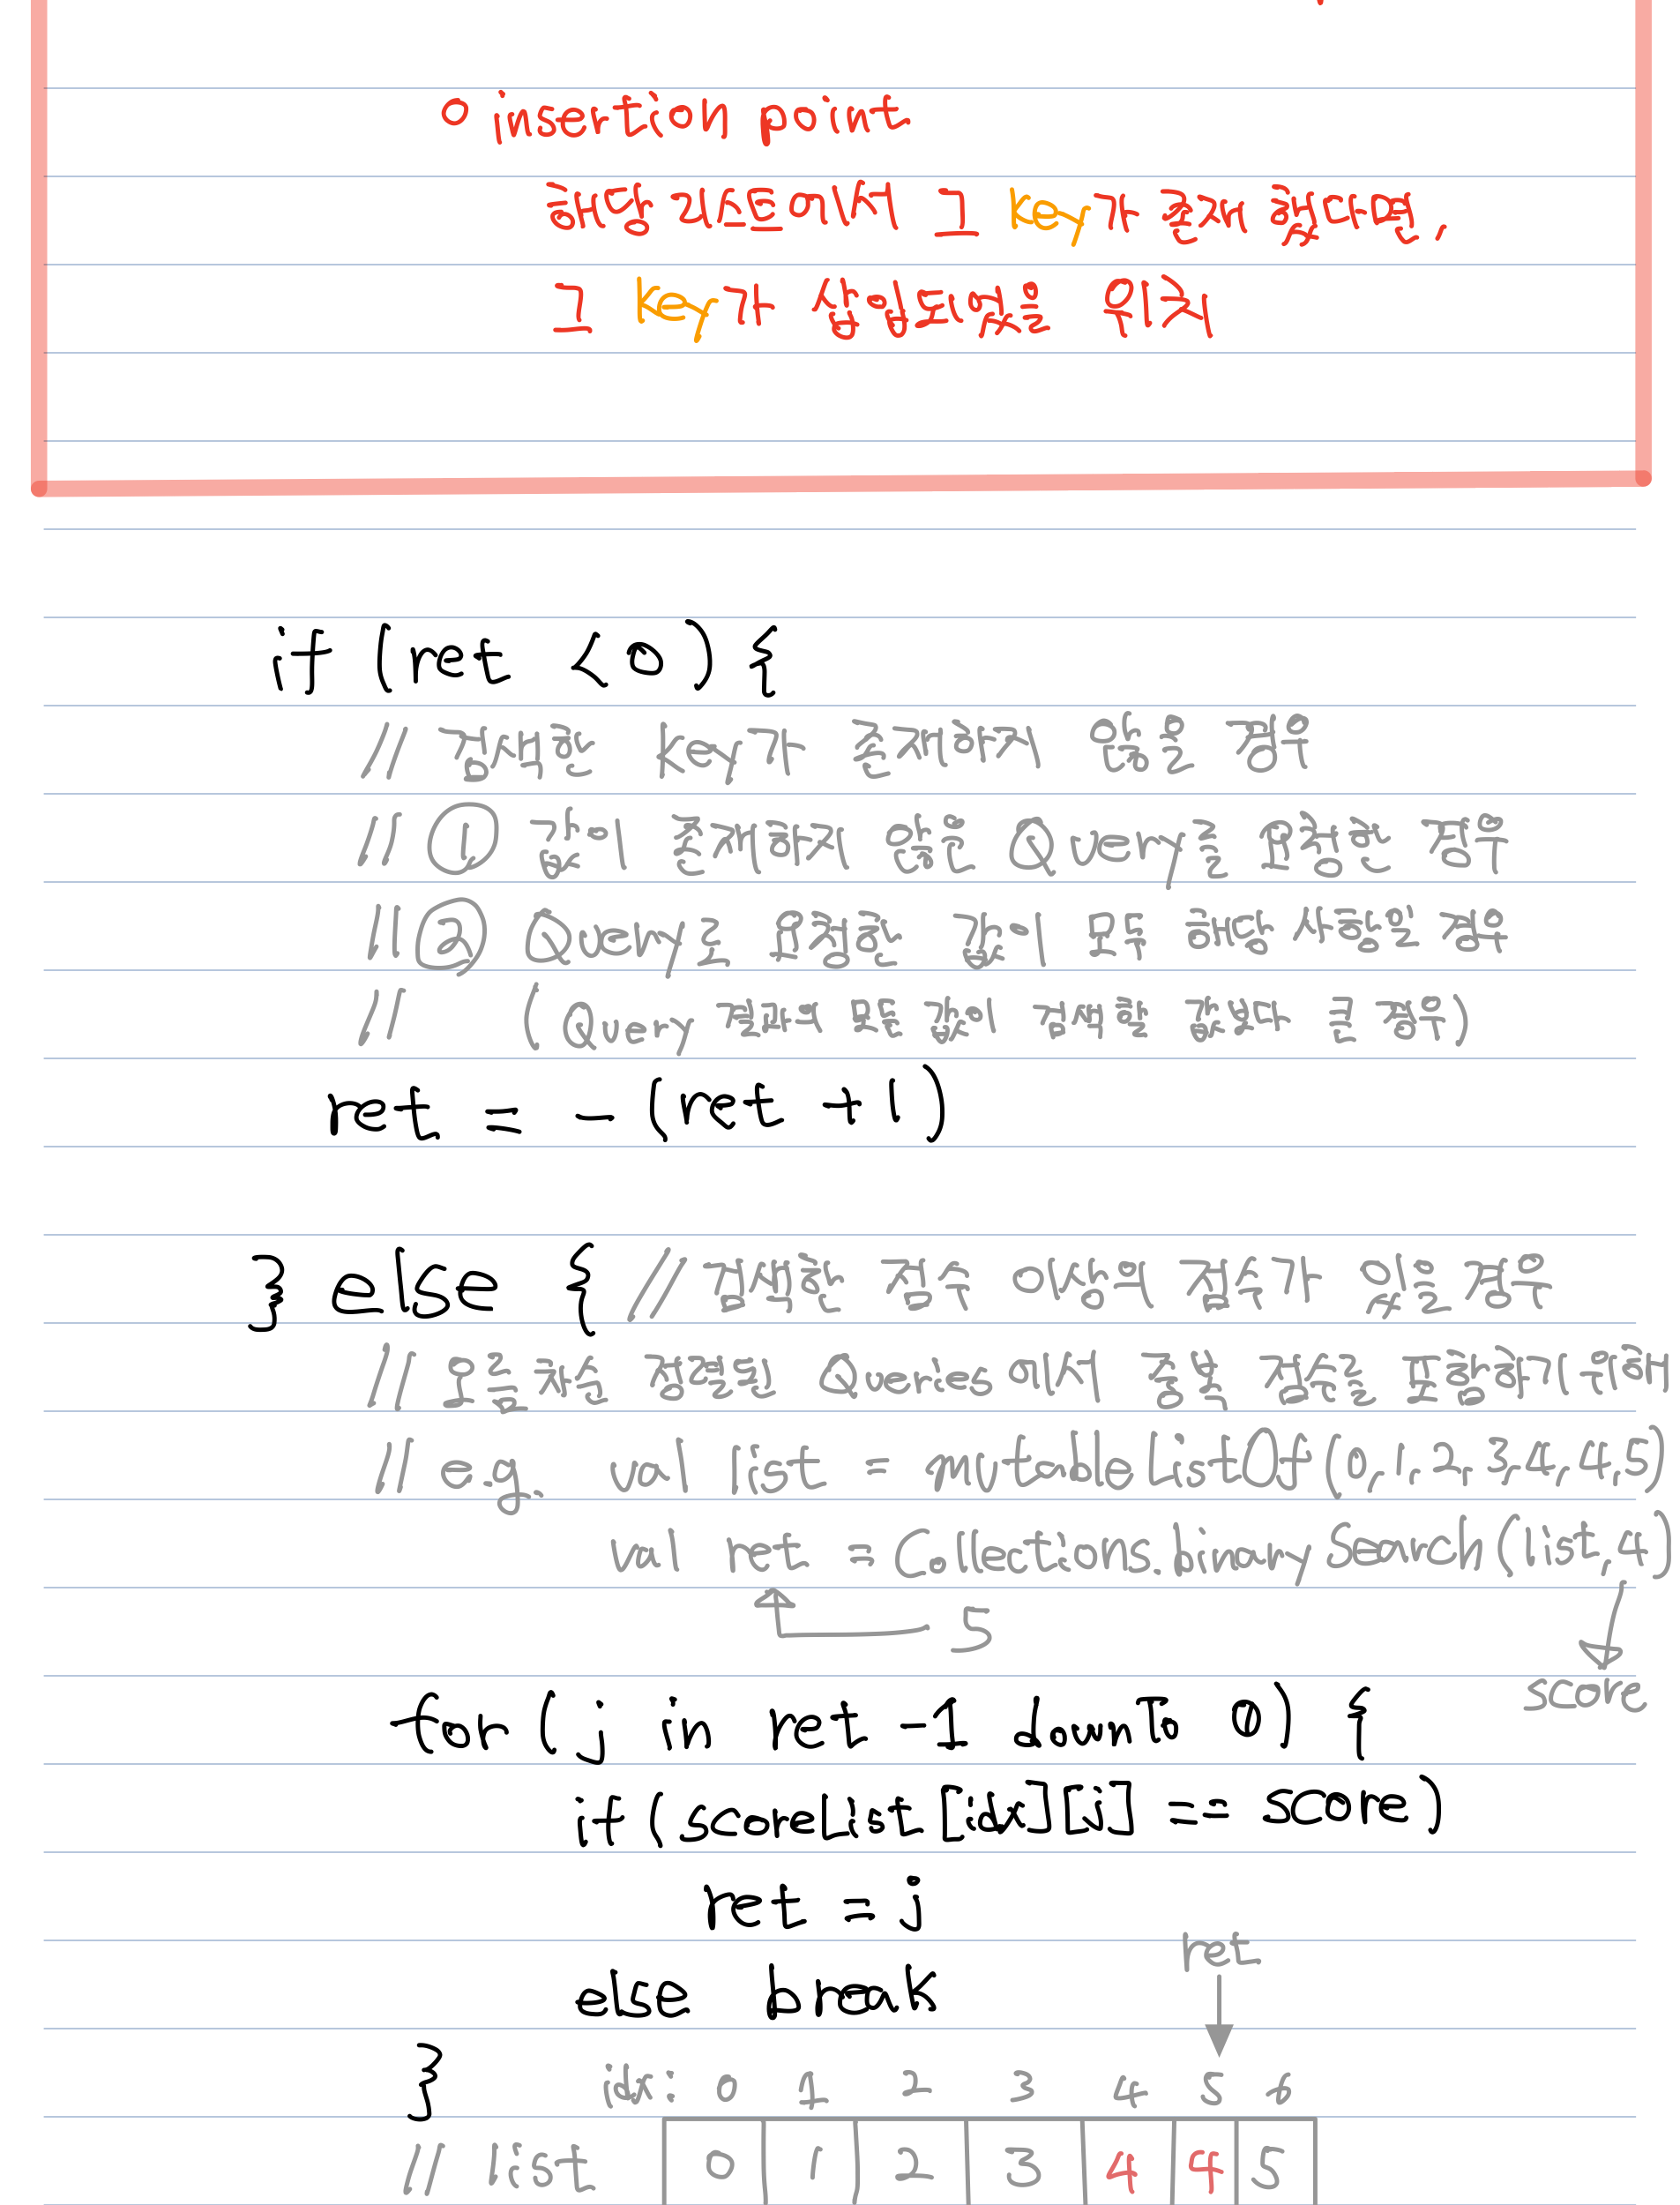 o insertion point
해당 리스트에서 그 key가 존재 했다면,
그 key가 삽입되었을 위치
if (ret <0) {
// 검색한 key가 존재하지 않을 경우
// ① 값이 존재하지 않은 Query를 요청한 경우
// ② Query로 요청한 값이 모두 해당 사항일 경우
// (Query 결과의 모든 값이 검색할 값보다 큰 경우)
ret = - (ret +1)
} else { // 검색한 점수 이상의 점수가 있을 경우
// 오름차순 정렬된 Queries에서 중복 점수를 포함하기 위해
// e.g. val list = mutableListOf(0,1,2,3,4,4,5)
val ret = Collections.binarySearch(list,4)
5
score
for (j in ret -1 downTo 0) {
if (scoreList[idx][j] == score)
ret = j
else break
ret
} idx: 0 1 2 3 4 5 6
// list 0 1 2 3 4 4 5